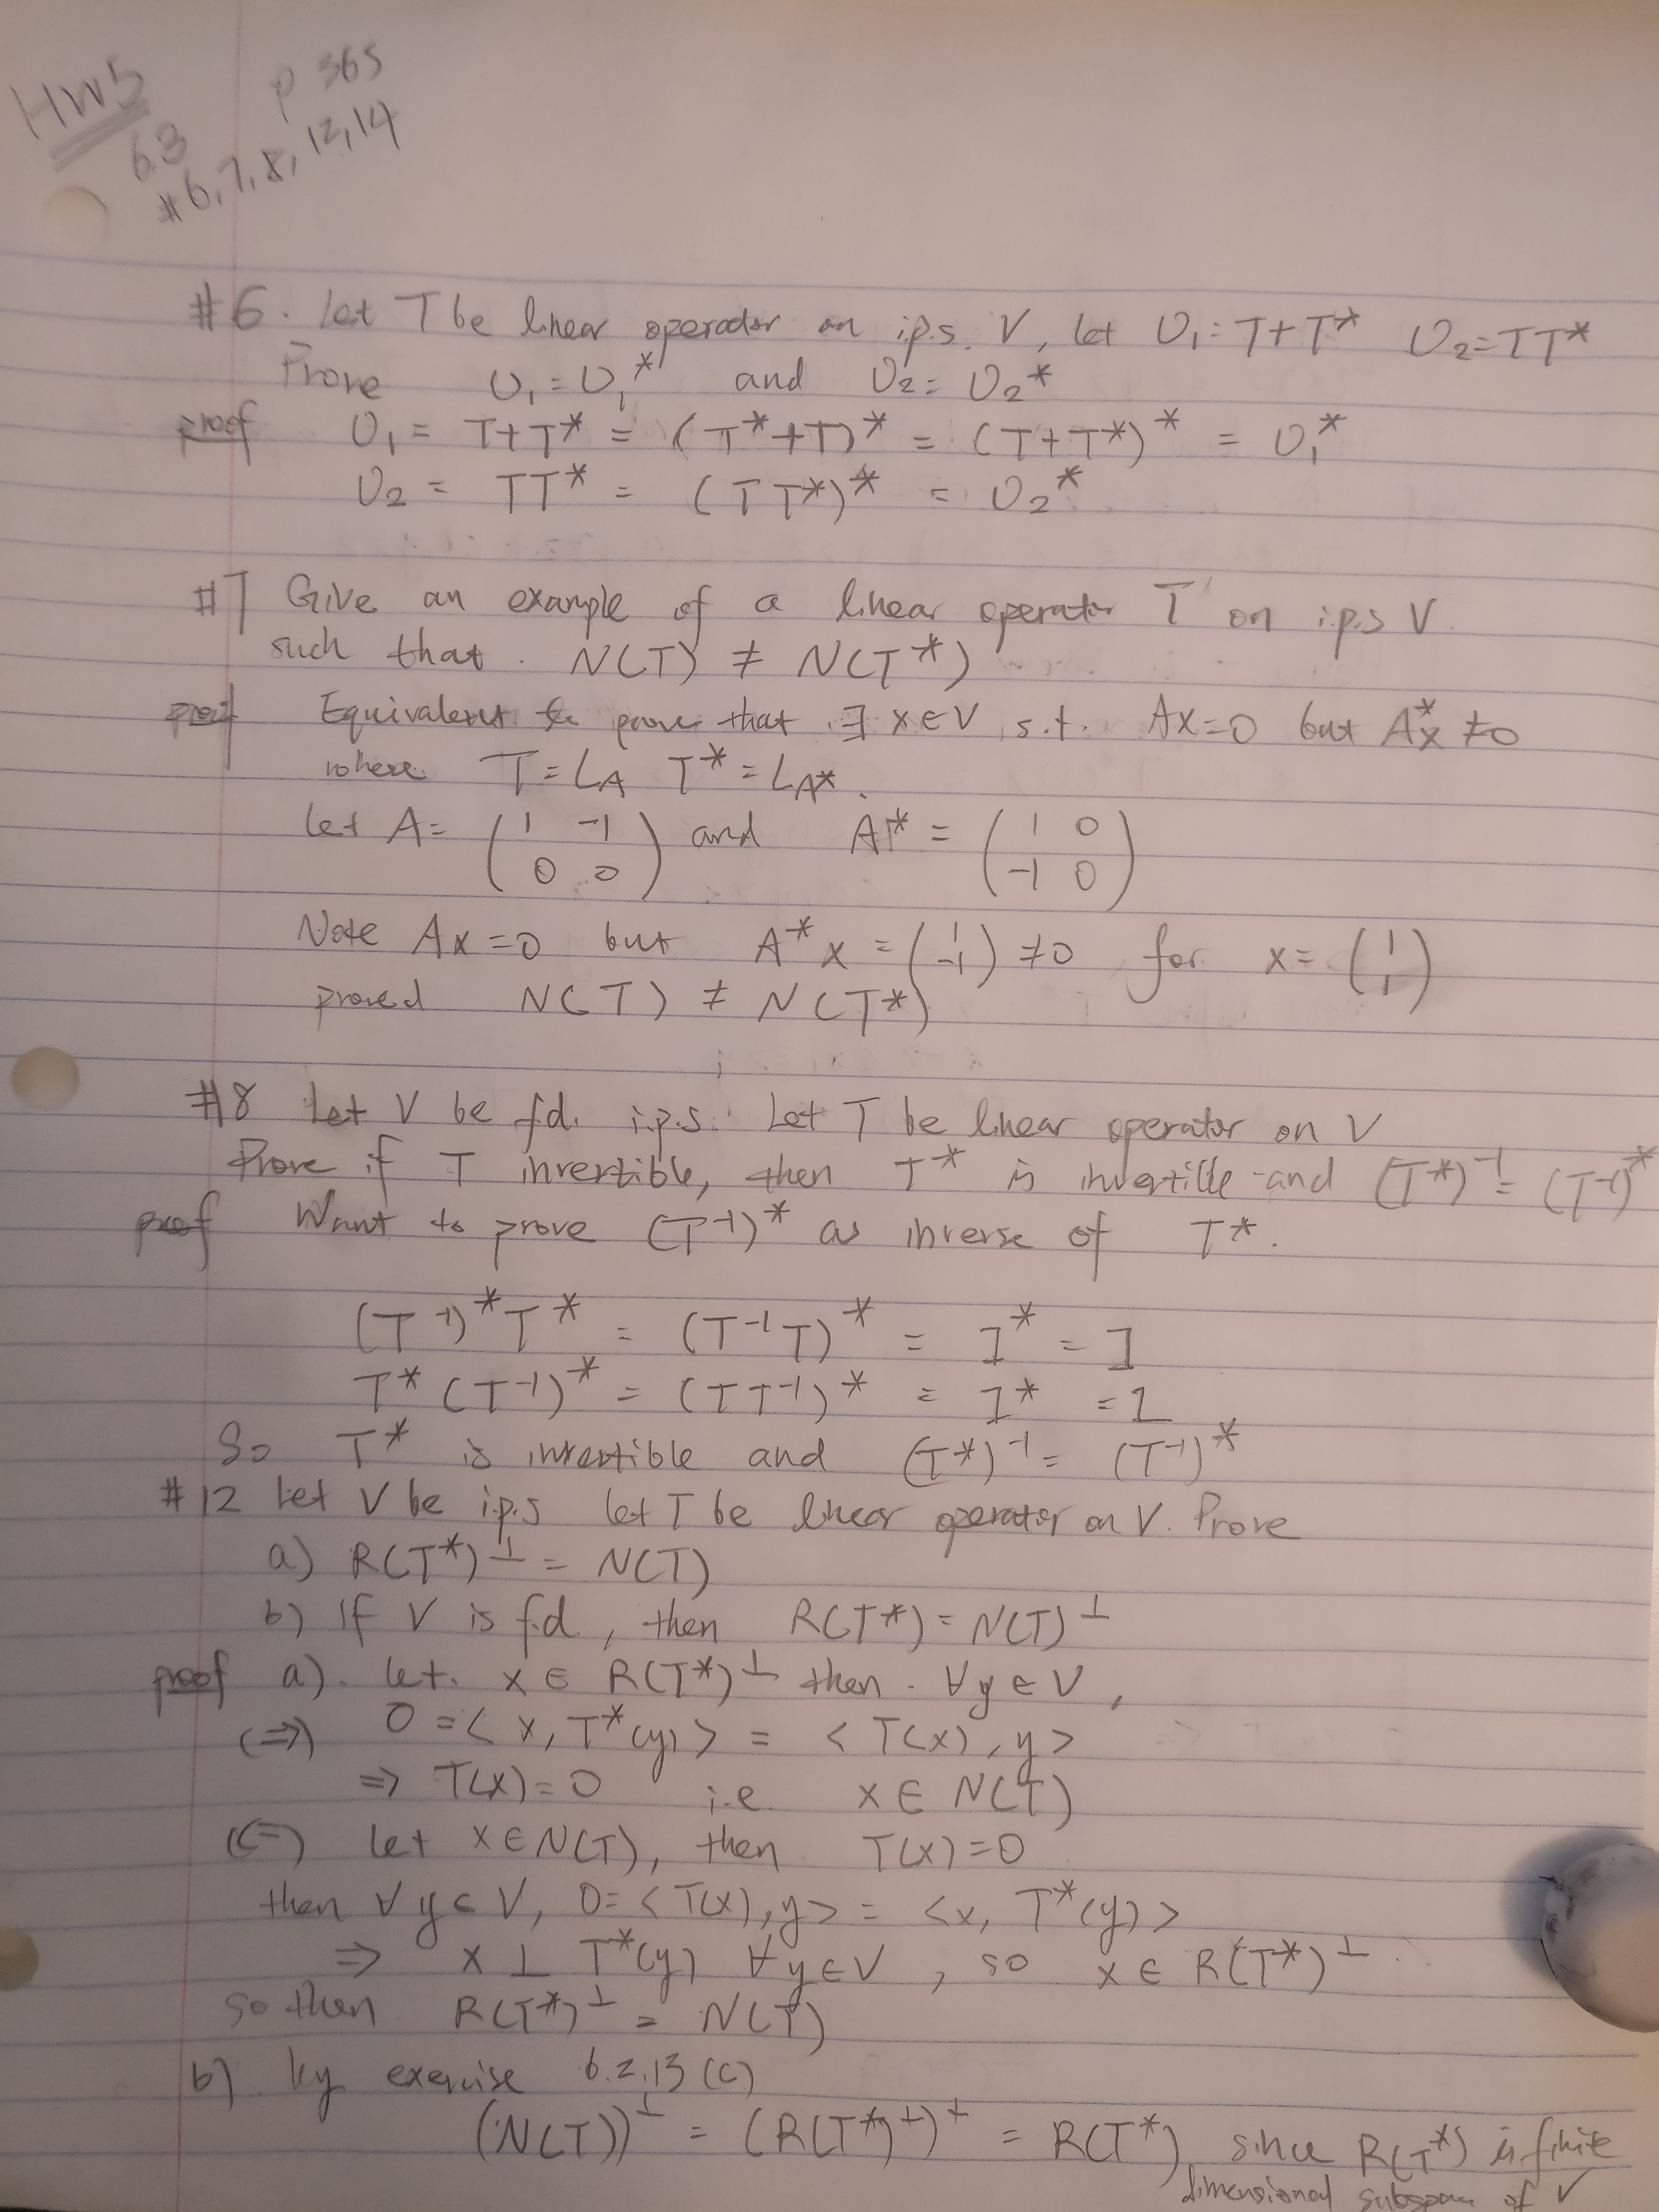 HW5 p 365
6.3
#6,7,8,12,14
#6. Let T be linear operator on i.p.s. V, let U₁=T+T* U₂=TT*
Prove U₁=U₁* and U₂=U₂*
proof U₁ = T+T* = (T*+T)* = (T+T*)* = U₁*
U₂ = TT* = (TT*)* = U₂*
#7 Give an example of a linear operator T on i.p.s V
such that. N(T) ≠ N(T*)
proof Equivalent to prove that ∃ x∈V s.t. Ax=0 but A*x ≠0
where T=L_A T*=L_A*.
let A= (1 -1; 0 0) and A* = (1 0; -1 0)
Note Ax=0 but A*x = (1; -1) ≠0 for x= (1; 1)
proved N(T) ≠ N(T*)
#8 Let V be f.d. i.p.s. Let T be linear operator on V
Prove if T invertible, then T* is invertible and (T*)⁻¹ = (T⁻¹)*
proof Want to prove (T⁻¹)* as inverse of T*.
(T⁻¹)*T* = (T⁻¹T)* = I* = I
T*(T⁻¹)* = (TT⁻¹)* = I* = I
So T* is invertible and (T*)⁻¹ = (T⁻¹)*
#12 Let V be i.p.s let T be linear operator on V. Prove
a) R(T*)⊥ = N(T)
b) If V is f.d, then R(T*) = N(T)⊥
proof a). let. x ∈ R(T*)⊥ then. ∀y∈V,
(⇒) 0 = <x, T*(y)> = <T(x), y>
⇒ T(x)=0 i.e. x ∈ N(T)
(⇐) let x∈N(T), then T(x)=0
then ∀y∈V, 0=<T(x),y> = <x, T*(y)>
⇒ x ⊥ T*(y) ∀y∈V, so x ∈ R(T*)⊥
so then R(T*)⊥ = N(T)
b) by exercise 6.2.13 (c)
(N(T))⊥ = (R(T*)⊥)⊥ = R(T*) since R(T*) is finite
dimensional subspace of V